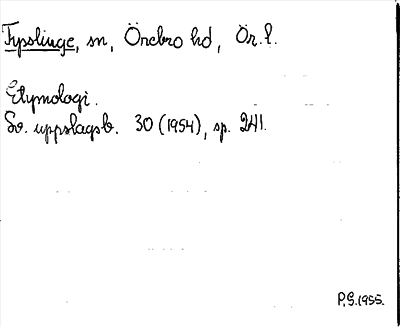 Tysslinge, sn, Örebro hd, Ör. l.
Etymologi.
Sv. uppslagsb. 30 (1954), sp. 241.
P.G. 1955.